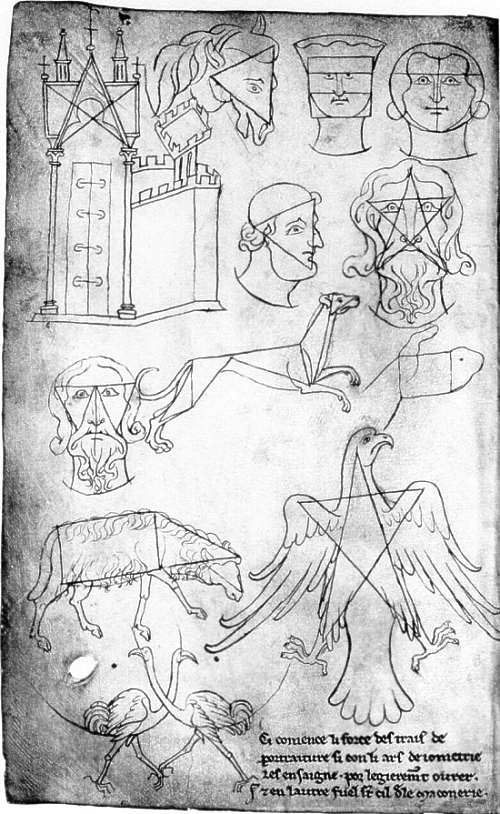 Ci comence li force des trais de
portraiture si con li ars de iometrie
les ensaigne · por legierem̄t ovrer.
⁊ en lautre fuel st̄ cil d̄le maconerie.